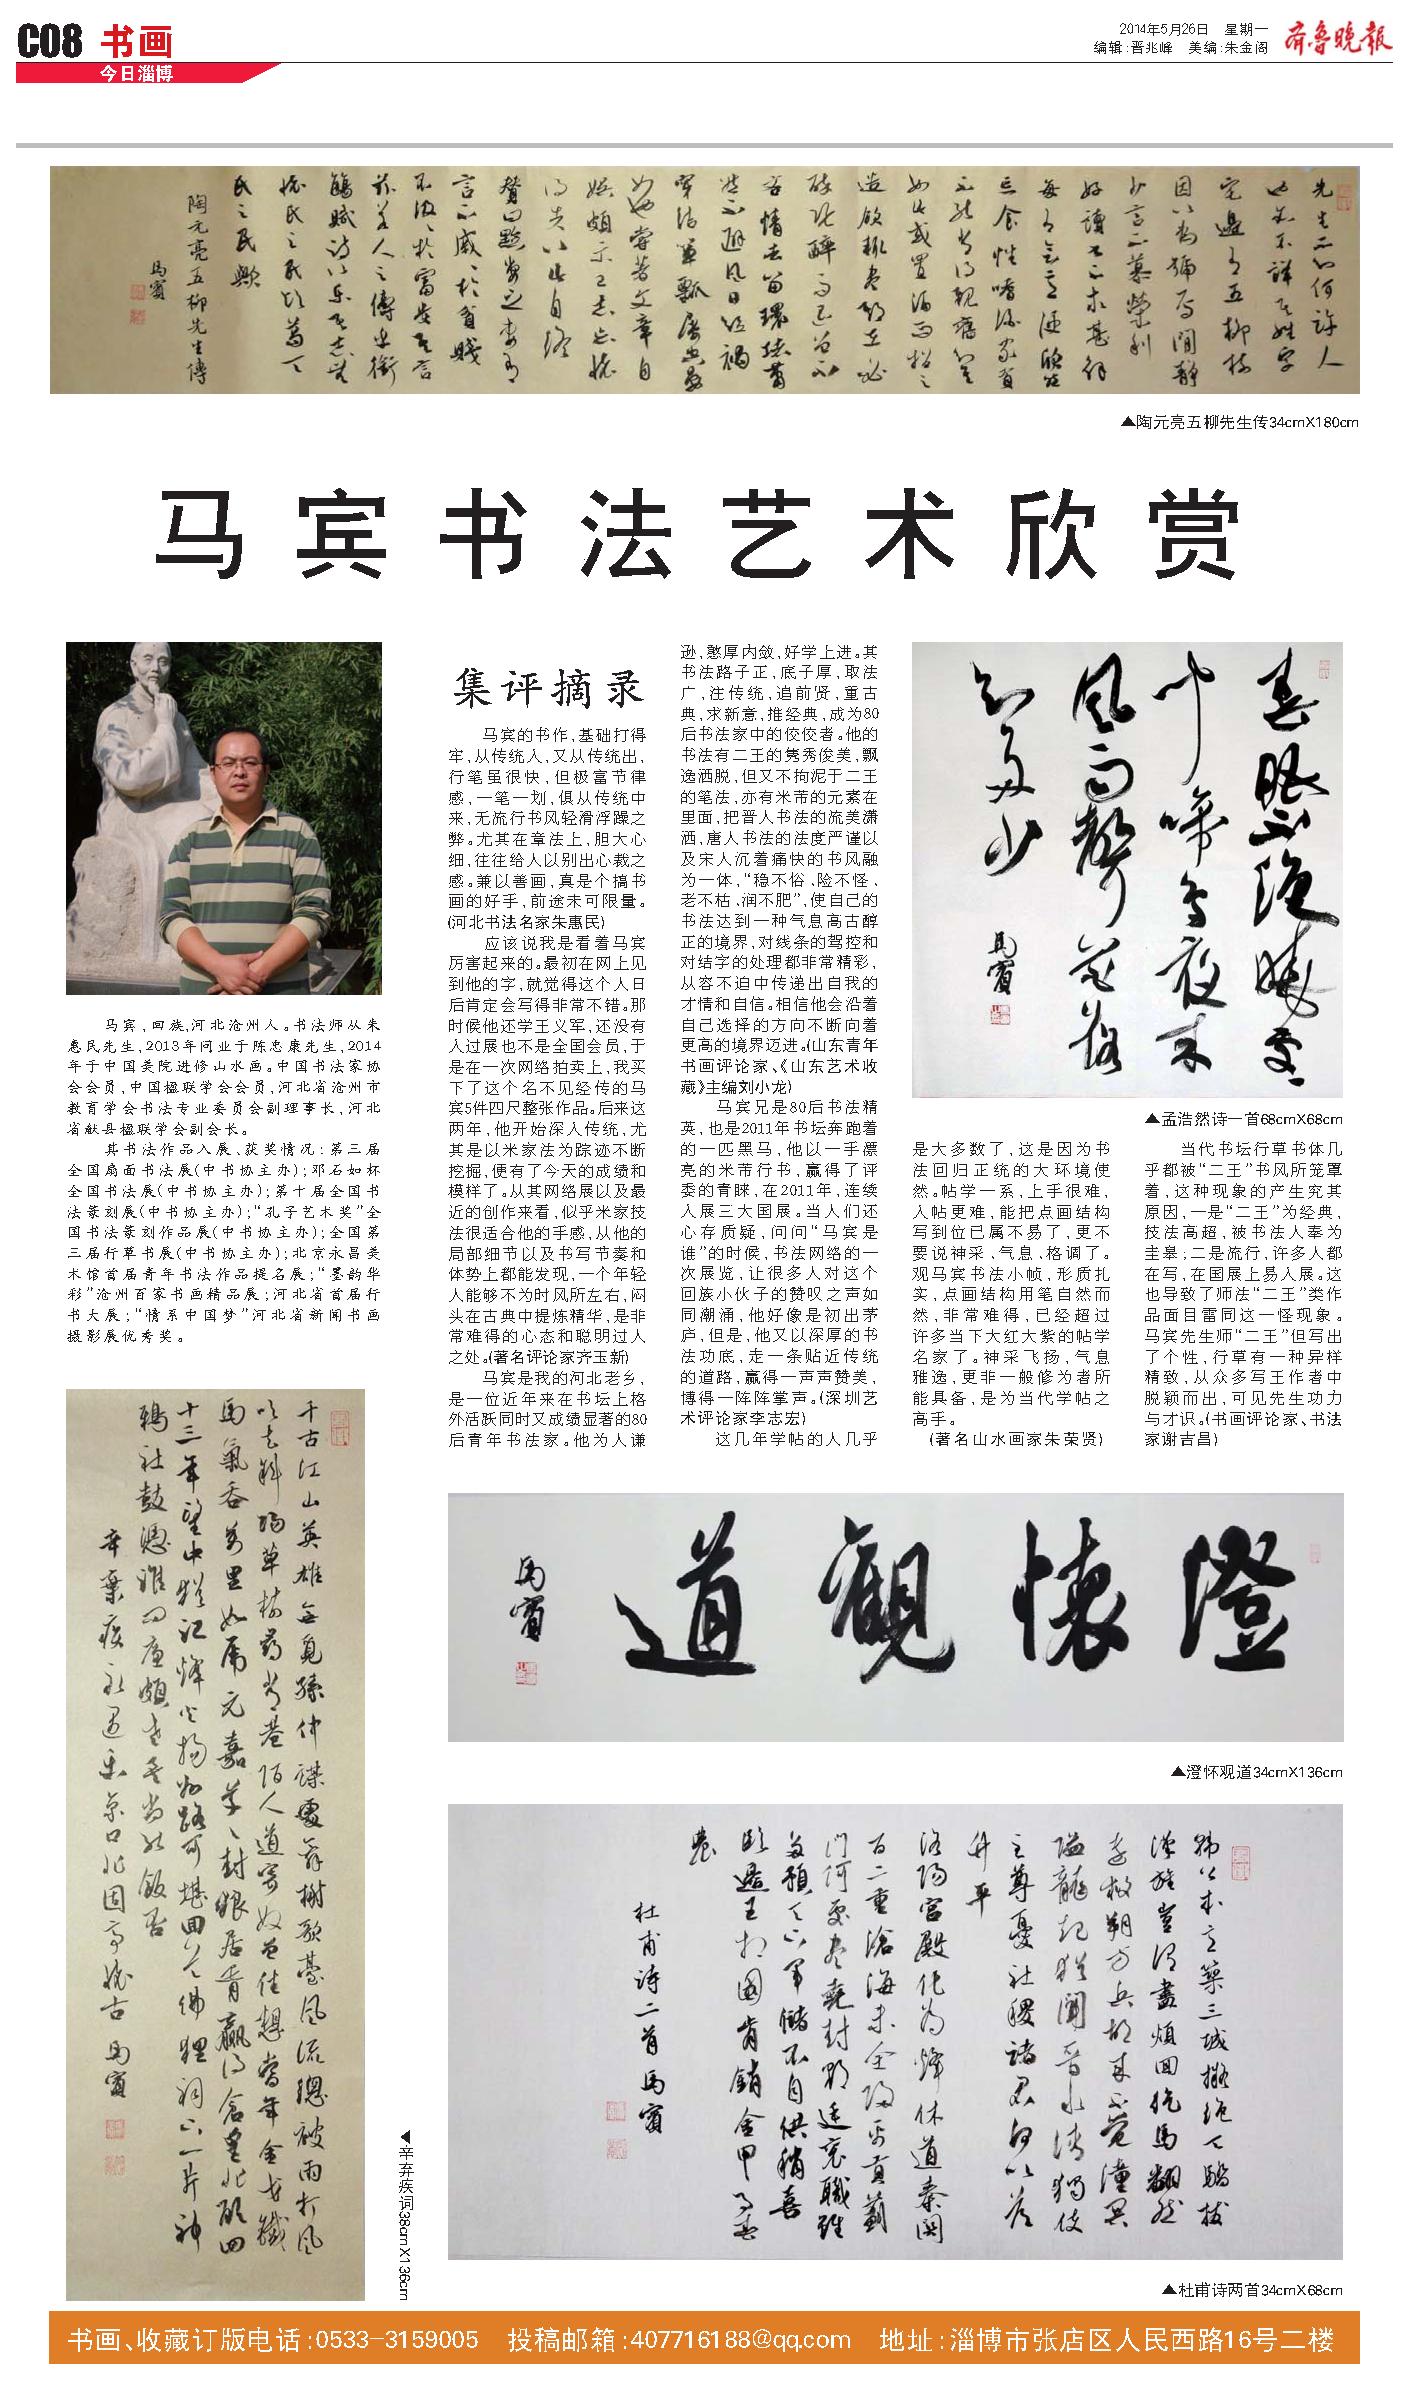 C08 书画
今日淄博
2014年5月26日 星期一
编辑:晋兆峰 美编:朱金阁
齐鲁晚报
▲陶元亮五柳先生传34cmX180cm
马宾书法艺术欣赏
马宾,回族,河北沧州人。书法师从朱
惠民先生,2013年问业于陈忠康先生,2014
年于中国美院进修山水画。中国书法家协
会会员,中国楹联学会会员,河北省沧州市
教育学会书法专业委员会副理事长,河北
省献县楹联学会副会长。
其书法作品入展、获奖情况:第三届
全国扇面书法展(中书协主办);邓石如杯
全国书法展(中书协主办);第十届全国书
法篆刻展(中书协主办);“孔子艺术奖”全
国书法篆刻作品展(中书协主办);全国第
三届行草书展(中书协主办);北京永昌美
术馆首届青年书法作品提名展;“墨韵华
彩”沧州百家书画精品展;河北省首届行
书大展;“情系中国梦”河北省新闻书画
摄影展优秀奖。
集评摘录
马宾的书作,基础打得
牢,从传统入,又从传统出,
行笔虽很快,但极富节律
感,一笔一划,俱从传统中
来,无流行书风轻滑浮躁之
弊。尤其在章法上,胆大心
细,往往给人以别出心裁之
感。兼以善画,真是个搞书
画的好手,前途未可限量。
(河北书法名家朱惠民)
应该说我是看着马宾
厉害起来的。最初在网上见
到他的字,就觉得这个人日
后肯定会写得非常不错。那
时候他还学王义军,还没有
入过展也不是全国会员,于
是在一次网络拍卖上,我买
下了这个名不见经传的马
宾5件四尺整张作品。后来这
两年,他开始深入传统,尤
其是以米家法为踪迹不断
挖掘,便有了今天的成绩和
模样了。从其网络展以及最
近的创作来看,似乎米家技
法很适合他的手感,从他的
局部细节以及书写节奏和
体势上都能发现,一个年轻
人能够不为时风所左右,闷
头在古典中提炼精华,是非
常难得的心态和聪明过人
之处。(著名评论家齐玉新)
马宾是我的河北老乡,
是一位近年来在书坛上格
外活跃同时又成绩显著的80
后青年书法家。他为人谦
逊,憨厚内敛,好学上进。其
书法路子正,底子厚,取法
广,注传统,追前贤,重古
典,求新意,推经典,成为80
后书法家中的佼佼者。他的
书法有二王的隽秀俊美,飘
逸洒脱,但又不拘泥于二王
的笔法,亦有米芾的元素在
里面,把晋人书法的流美潇
洒,唐人书法的法度严谨以
及宋人沉着痛快的书风融
为一体,“稳不俗、险不怪、
老不枯、润不肥”,使自己的
书法达到一种气息高古醇
正的境界,对线条的驾控和
对结字的处理都非常精彩,
从容不迫中传递出自我的
才情和自信。相信他会沿着
自己选择的方向不断向着
更高的境界迈进。(山东青年
书画评论家、《山东艺术收
藏》主编刘小龙)
马宾兄是80后书法精
英,也是2011年书坛奔跑着
的一匹黑马,他以一手漂
亮的米芾行书,赢得了评
委的青睐,在2011年,连续
入展三大国展。当人们还
心存质疑,问问“马宾是
谁”的时候,书法网络的一
次展览,让很多人对这个
回族小伙子的赞叹之声如
同潮涌,他好像是初出茅
庐,但是,他又以深厚的书
法功底,走一条贴近传统
的道路,赢得一声声赞美,
博得一阵阵掌声。(深圳艺
术评论家李志宏)
这几年学帖的人几乎
▲孟浩然诗一首68cmX68cm
是大多数了,这是因为书
法回归正统的大环境使
然。帖学一系,上手很难,
入帖更难,能把点画结构
写到位已属不易了,更不
要说神采、气息、格调了。
观马宾书法小帧,形质扎
实,点画结构用笔自然而
然,非常难得,已经超过
许多当下大红大紫的帖学
名家了。神采飞扬,气息
雅逸,更非一般修为者所
能具备,是为当代学帖之
高手。
(著名山水画家朱荣贤)
当代书坛行草书体几
乎都被“二王”书风所笼罩
着,这种现象的产生究其
原因,一是“二王”为经典,
技法高超,被书法人奉为
圭皋;二是流行,许多人都
在写,在国展上易入展。这
也导致了师法“二王”类作
品面目雷同这一怪现象。
马宾先生师“二王”但写出
了个性,行草有一种异样
精致,从众多写王作者中
脱颖而出,可见先生功力
与才识。(书画评论家、书法
家谢吉昌)
澄懷觀道
馬賓
▲澄怀观道34cmX136cm
▲辛弃疾词38cmX136cm
杜甫诗二首 馬賓
▲杜甫诗两首34cmX68cm
书画、收藏订版电话:0533-3159005 投稿邮箱:407716188@qq.com 地址:淄博市张店区人民西路16号二楼